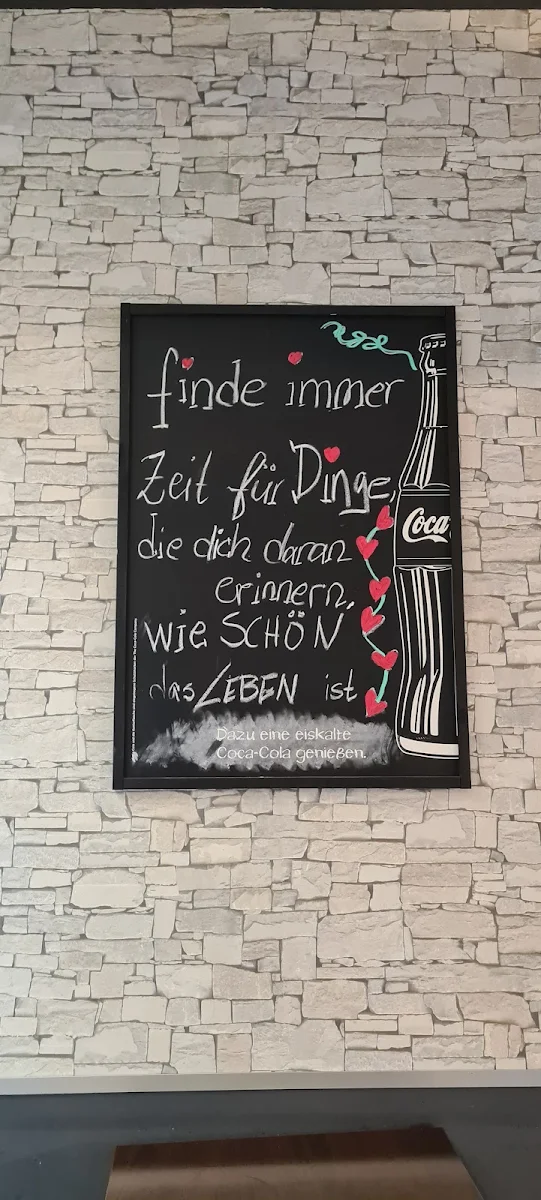 finde immer
Zeit für Dinge,
die dich daran
erinnern,
wie SCHÖN
das LEBEN ist
Dazu eine eiskalte
Coca-Cola genießen.
Coca